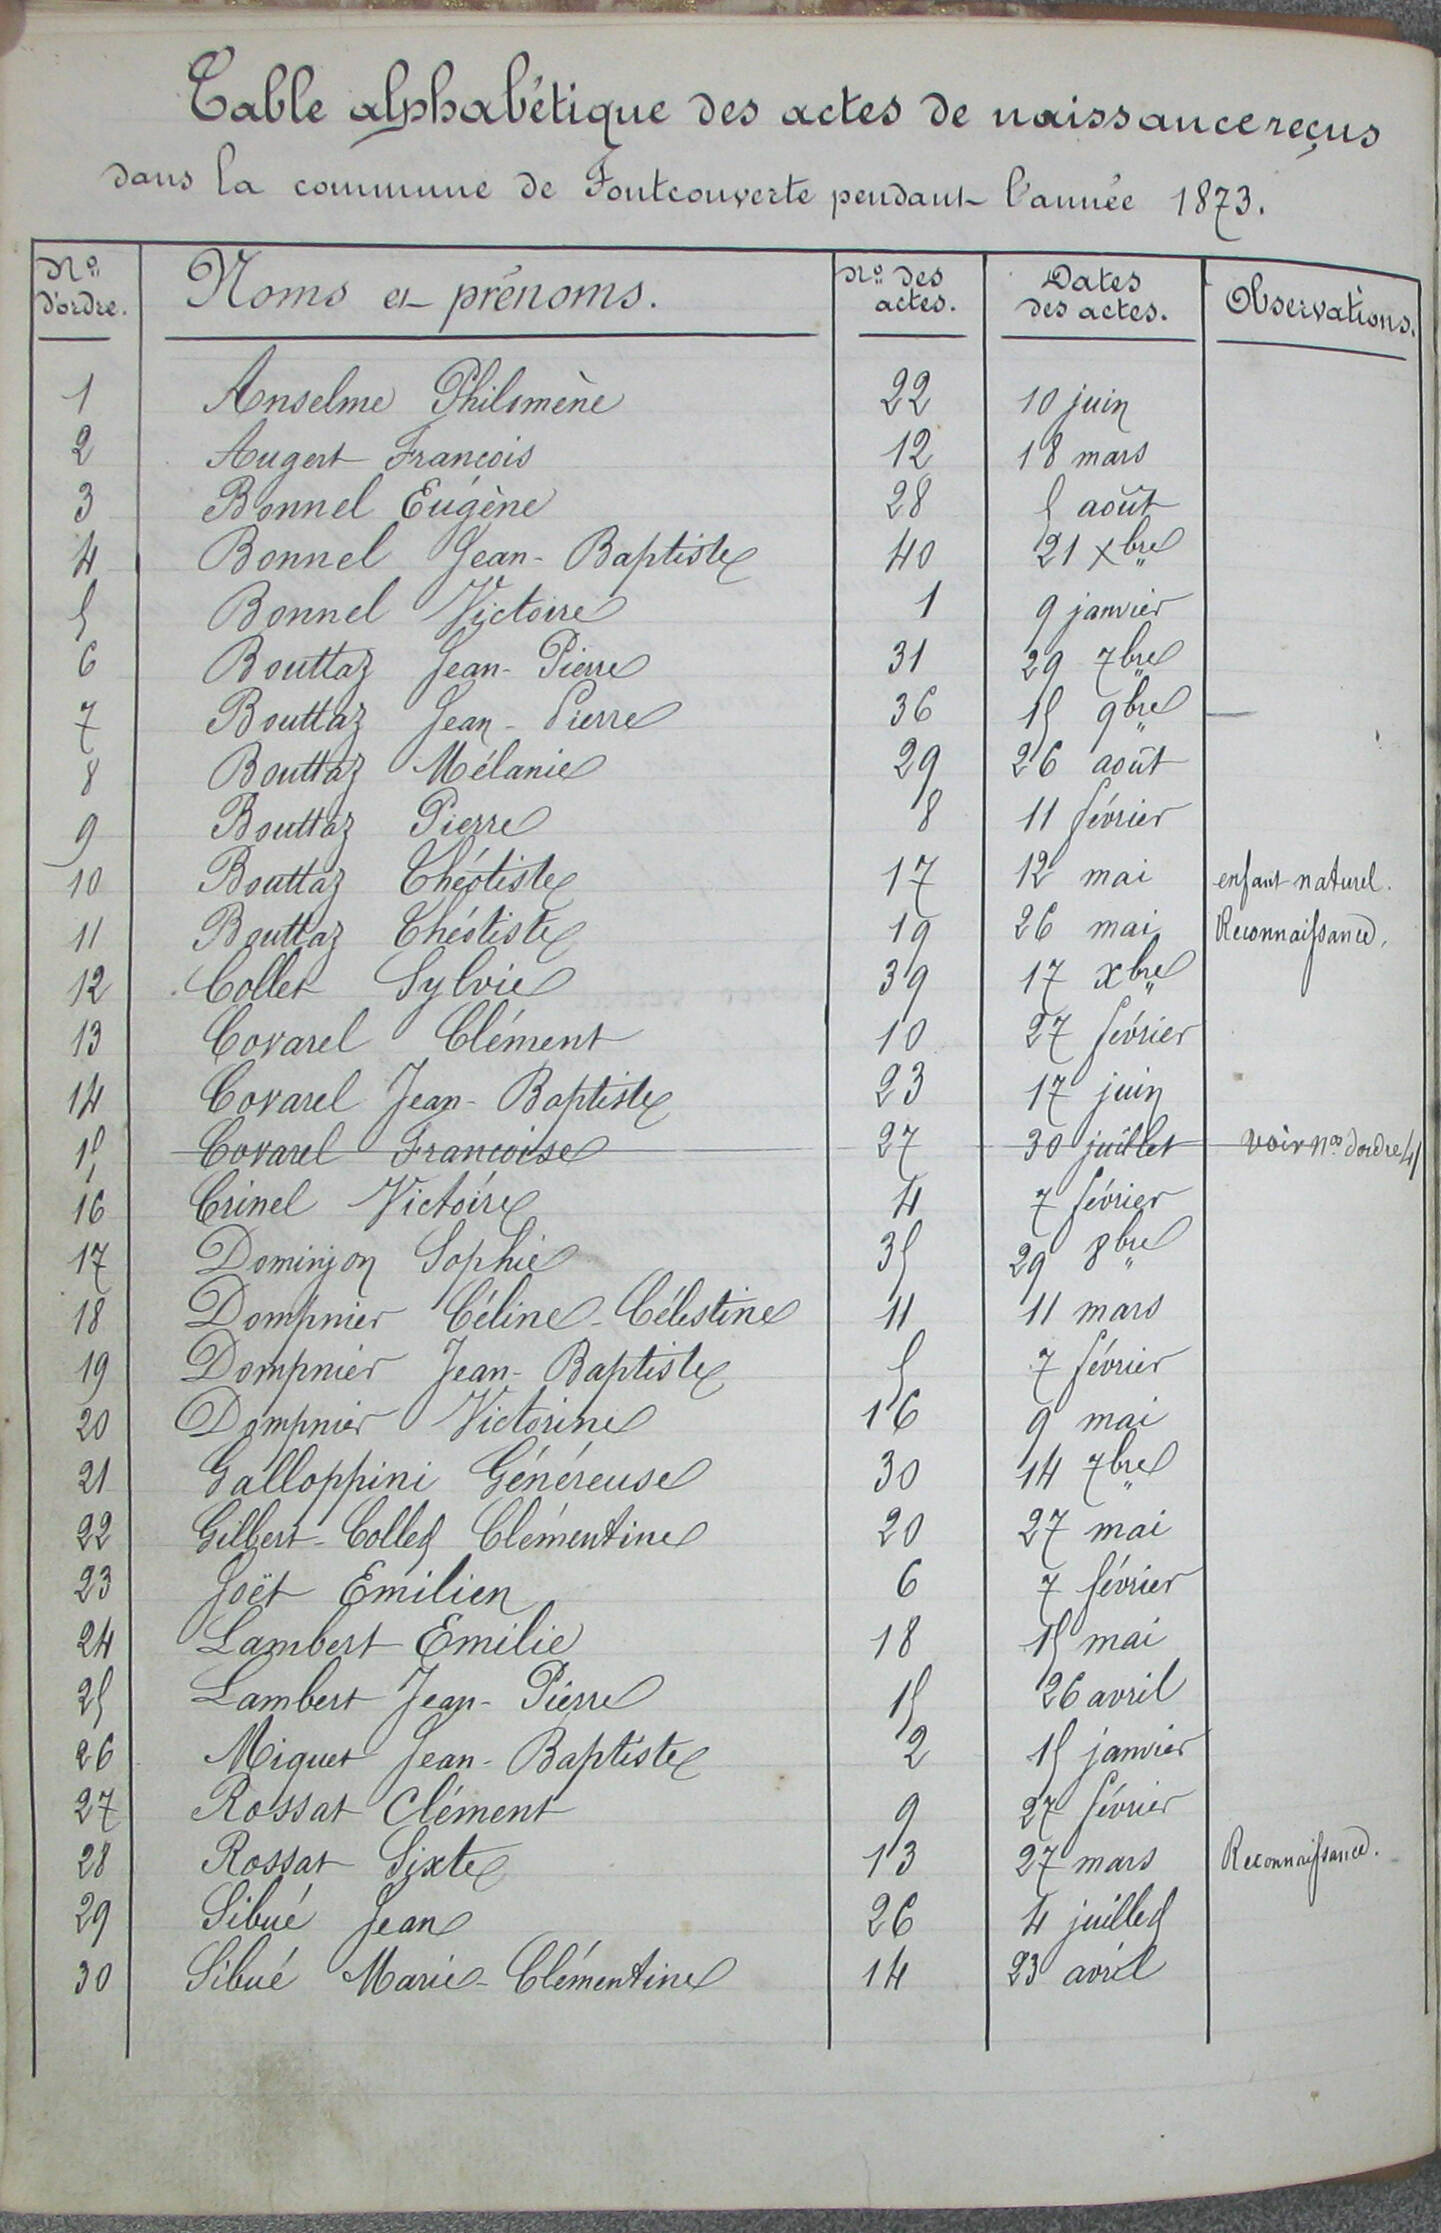 Table alphabétique des actes de naissance reçus
dans la commune de Fontcouverte pendant l'année 1873.
Nos d'ordre. Noms et prénoms. Nos des actes. Dates des actes. Observations.
1 Anselme Philomène 22 10 juin
2 Augert François 12 18 mars
3 Bonnel Eugène 28 5 août
4 Bonnel Jean-Baptiste 40 21 xbre
5 Bonnel Victoire 1 9 janvier
6 Bouttaz Jean-Pierre 31 29 7bre
7 Bouttaz Jean-Pierre 36 15 9bre —
8 Bouttaz Mélanie 29 26 août
9 Bouttaz Pierre 8 11 février
10 Bouttaz Théotiste 17 12 mai enfant naturel.
11 Bouttaz Théotiste 19 26 mai Reconnaissance,
12 Collet Sylvie 39 17 xbre
13 Covarel Clément 10 27 février
14 Covarel Jean-Baptiste 23 17 juin
15 Covarel Françoise 27 30 juillet voir no d'ordre 41
16 Crinel Victoire 4 7 février
17 Dominjon Sophie 35 29 8bre
18 Dompnier Céline-Célestine 11 11 mars
19 Dompnier Jean-Baptiste 5 7 février
20 Dompnier Victorine 16 9 mai
21 Galloppini Généreuse 30 14 7bre
22 Gilbert-Collet Clémentine 20 27 mai
23 Joët Emilien 6 7 février
24 Lambert Emilie 18 15 mai
25 Lambert Jean-Pierre 15 26 avril
26 Miquet Jean-Baptiste 2 15 janvier
27 Rossat Clément 9 27 février
28 Rossat Sixte 13 27 mars Reconnaissance.
29 Sibué Jean 26 4 juillet
30 Sibué Marie-Clémentine 14 23 avril